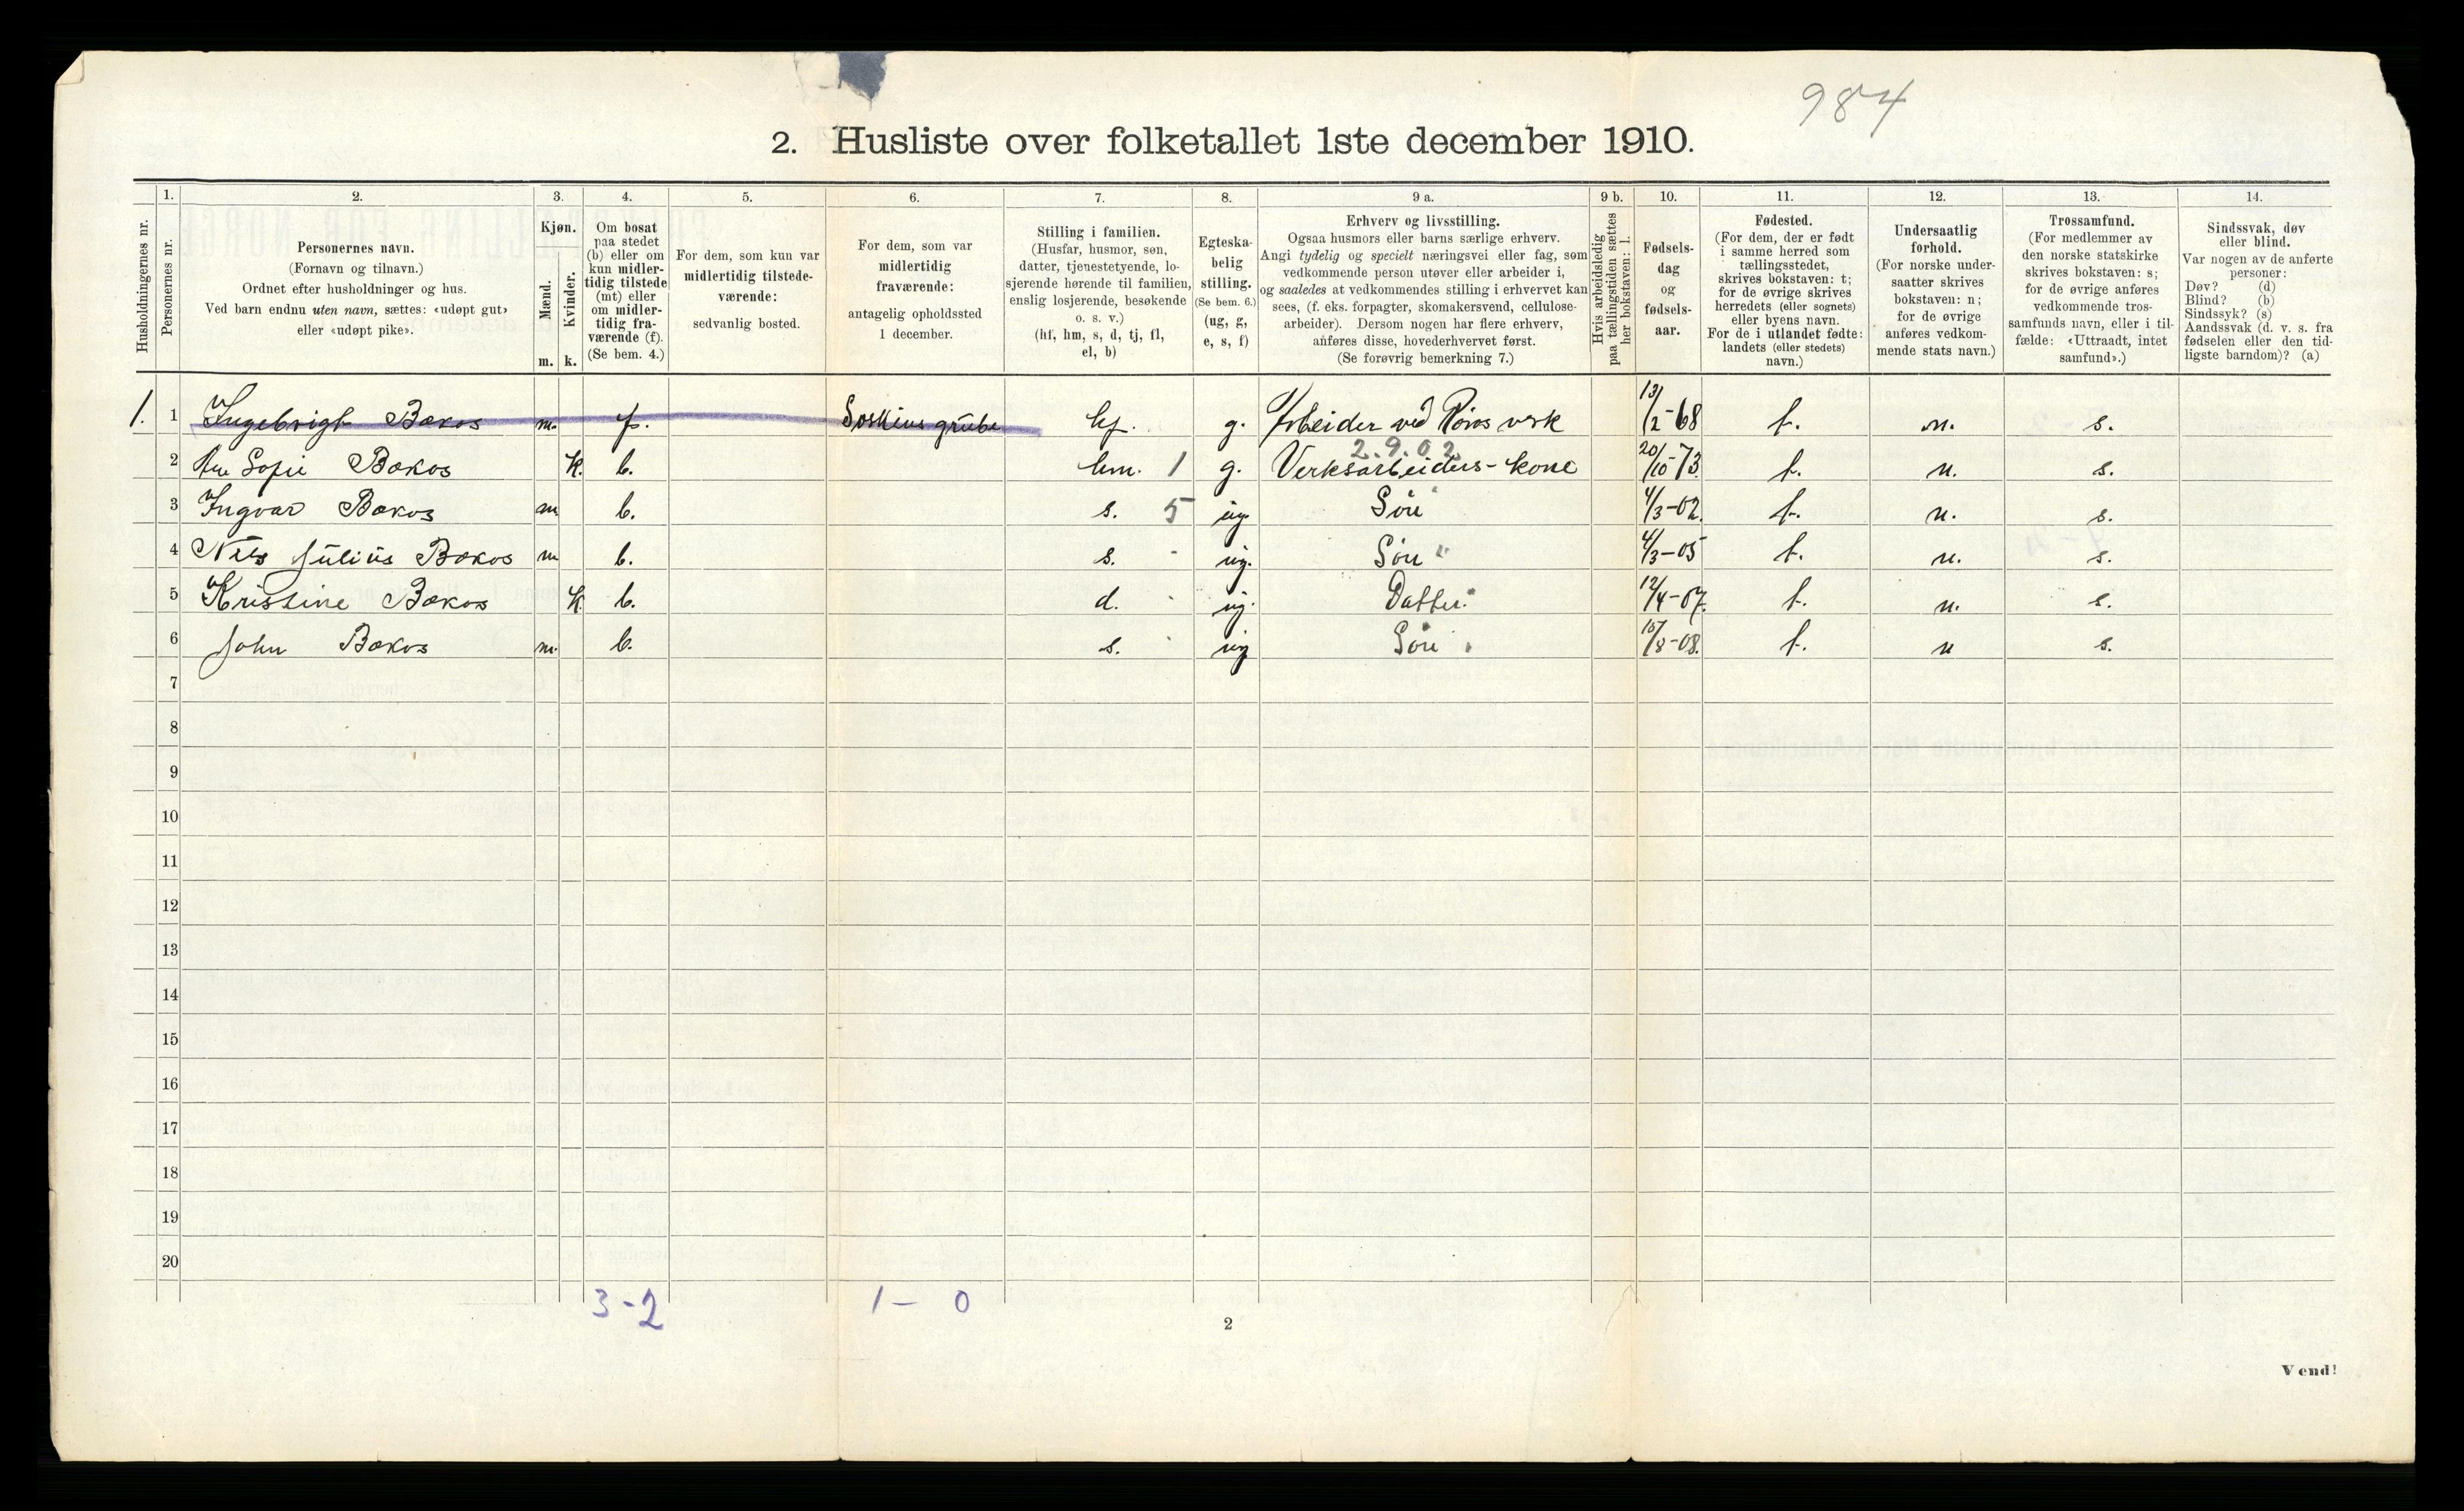 984
2. Husliste over folketallet 1ste december 1910.
Husholdningernes nr.
1.
Personernes nr.
2.
Personernes navn.
(Fornavn og tilnavn.)
Ordnet efter husholdninger og hus.
Ved barn endnu uten navn, sættes: «udøpt gut»
eller «udøpt pike».
3.
Kjøn.
Mænd.
Kvinder.
m. k.
4.
Om bosat
paa stedet
(b) eller om
kun midler-
tidig tilstede
(mt) eller
om midler-
tidig fra-
værende (f).
(Se bem. 4.)
5.
For dem, som kun var
midlertidig tilstede-
værende:
sedvanlig bosted.
6.
For dem, som var
midlertidig
fraværende:
antagelig opholdssted
1 december.
7.
Stilling i familien.
(Husfar, husmor, søn,
datter, tjenestetyende, lo-
sjerende hørende til familien,
enslig losjerende, besøkende
o. s. v.)
(hf, hm, s, d, tj, fl,
el, b)
8.
Egteska-
belig
stilling.
(Se bem. 6.)
(ug, g,
e, s, f)
9 a.
Erhverv og livsstilling.
Ogsaa husmors eller barns særlige erhverv.
Angi tydelig og specielt næringsvei eller fag, som
vedkommende person utøver eller arbeider i,
og saaledes at vedkommendes stilling i erhvervet kan
sees, (f. eks. forpagter, skomakersvend, cellulose-
arbeider). Dersom nogen har flere erhverv,
anføres disse, hovederhvervet først.
(Se forøvrig bemerkning 7.)
9 b.
Hvis arbeidsledig
paa tællingstiden sættes
her bokstaven: l.
10.
Fødsels-
dag
og
fødsels-
aar.
11.
Fødested.
(For dem, der er født
i samme herred som
tællingsstedet,
skrives bokstaven: t;
for de øvrige skrives
herredets (eller sognets)
eller byens navn.
For de i utlandet fødte:
landets (eller stedets)
navn.)
12.
Undersaatlig
forhold.
(For norske under-
saatter skrives
bokstaven: n;
for de øvrige
anføres vedkom-
mende stats navn.)
13.
Trossamfund.
(For medlemmer av
den norske statskirke
skrives bokstaven: s;
for de øvrige anføres
vedkommende tros-
samfunds navn, eller i til-
fælde: «Uttraadt, intet
samfund».)
14.
Sindssvak, døv
eller blind.
Var nogen av de anførte
personer:
Døv? (d)
Blind? (b)
Sindssyk? (s)
Aandssvak (d. v. s. fra
fødselen eller den tid-
ligste barndom)? (a)
1. 1 Ingebrigt Bækos m. f. grube hf. g. Arbeider ved Røros verk 13/2-68 t. n. s.
2.9.02
2 Sofie Bækos k. b. hm. 1 g. Verksarbeiders-kone 20/10-73. t. n. s.
3 Ingvar Bækos m b. s. 5 ug. Søn " 4/3-02. t. n. s.
4 Nils Julius Bækos m b. s. - ug. Søn " 4/3-05 t. n. s.
5 Kristine Bækos k b. d. - ug. Datter " 12/4-07. t. n. s.
6 John Bækos m. b. s. - ug Søn " 15/8-08. t. n s.
7
8
9
10
11
12
13
14
15
16
17
18
19
20
3-2 1-0
2
Vend!